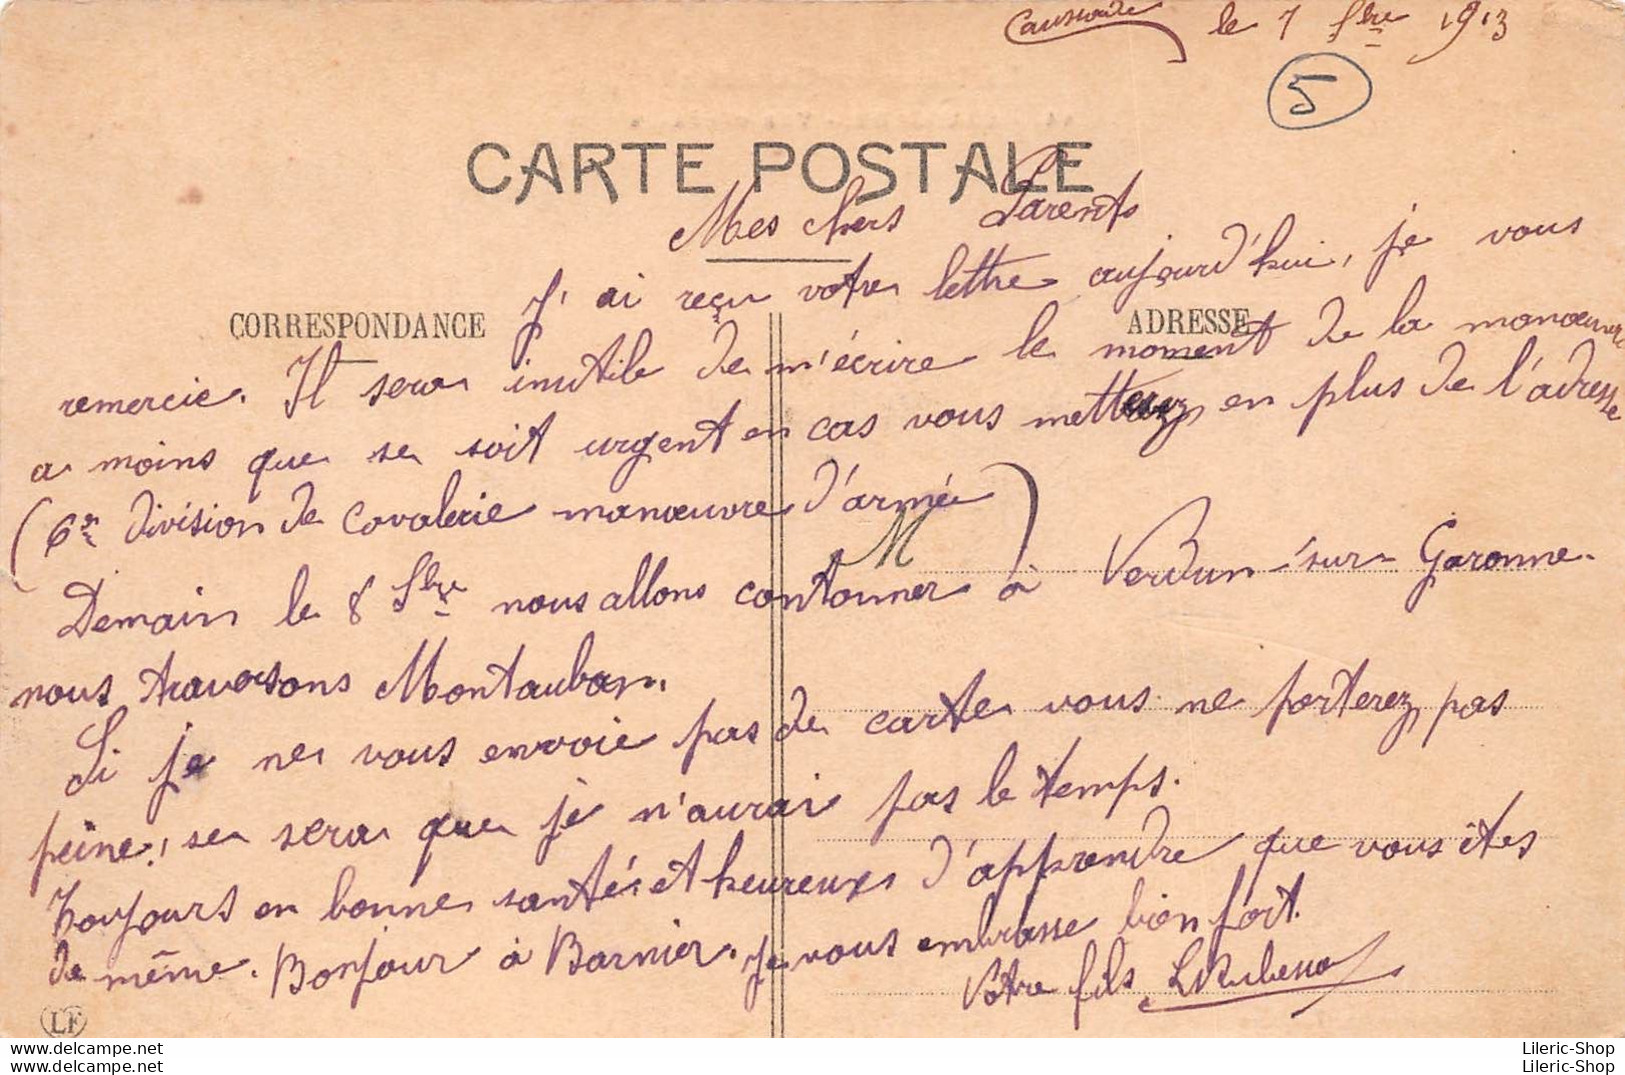 Caussade le 7 Sbre 1913
5
CARTE POSTALE
Mes chers Parents
J'ai reçu votre lettre aujourd'hui, je vous
CORRESPONDANCE
ADRESSE
remercie. Il sera inutile de m'écrire le moment de la manœuvre
a moins que se soit urgent en cas vous metterez en plus de l'adresse
(6e division de Cavalerie manœuvre d'armée)
M
Demain le 8 Sbre nous allons cantonner à Verdun-sur-Garonne.
nous traversons Montauban.
Si je ne vous envoie pas de carte vous ne porterez pas
peine, se sera que je n'aurai pas le temps.
Toujours en bonne santé et heureux d'apprendre que vous êtes
de même. Bonjour à Barnier. Je vous embrasse bien fort.
Votre fils
LF
Lileric-Shop
Lileric-Shop
Lileric-Shop
Lileric-Shop